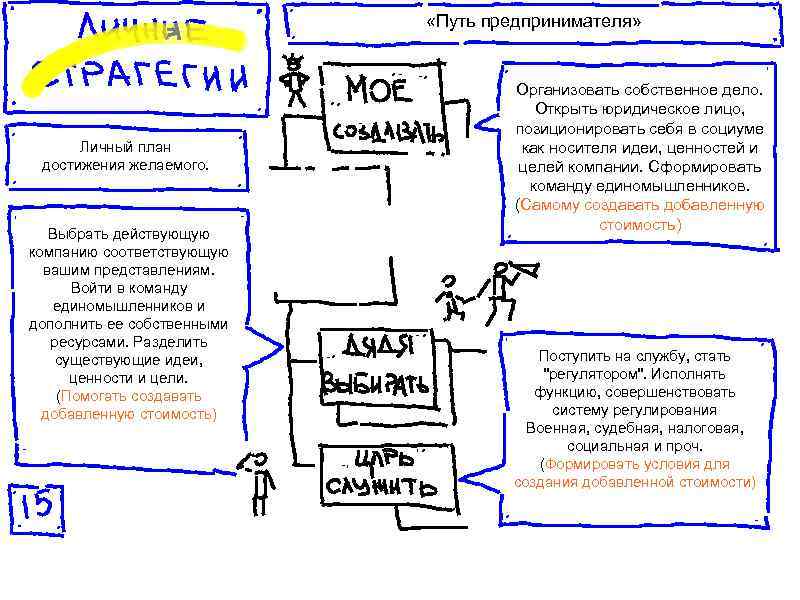 ЛИЧНЫЕ
СТРАТЕГИИ
«Путь предпринимателя»
Личный план
достижения желаемого.
МОЕ
СОЗДАВАТЬ
Организовать собственное дело.
Открыть юридическое лицо,
позиционировать себя в социуме
как носителя идеи, ценностей и
целей компании. Сформировать
команду единомышленников.
(Самому создавать добавленную
стоимость)
Выбрать действующую
компанию соответствующую
вашим представлениям.
Войти в команду
единомышленников и
дополнить ее собственными
ресурсами. Разделить
существующие идеи,
ценности и цели.
(Помогать создавать
добавленную стоимость)
ДЯДЯ
ВЫБИРАТЬ
Поступить на службу, стать
"регулятором". Исполнять
функцию, совершенствовать
систему регулирования
Военная, судебная, налоговая,
социальная и проч.
(Формировать условия для
создания добавленной стоимости)
ЦАРЬ
СЛУЖИТЬ
15